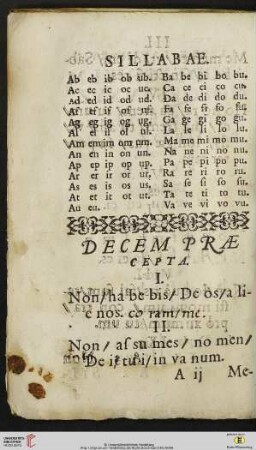 SILLABAE.
Ab eb ib ob ub. Ba be bi bo bu.
Ac ec ic oc uc. Ca ce ci co cu.
Ad ed id od ud. Da de di do du.
Af ef if of uf. Fa fe fi fo fu.
Ag eg ig og ug. Ga ge gi go gu.
Al el il ol ul. La le li lo lu.
Am em im om um. Ma me mi mo mu.
An en in on un. Na ne ni no nu.
Ap ep ip op up. Pa pe pi po pu.
Ar er ir or ur. Ra re ri ro ru.
As es is os us. Sa se si so su.
At et it ot ut. Ta te ti to tu.
Au eu. Va ve vi vo vu.
DECEM PRÆ
CEPTA.
I.
Non/ha be bis/ De os/a li-
e nos. co ram/me.
II.
Non/ as su mes/ no men/
De i: tu i/ in va num.
A ij Me-